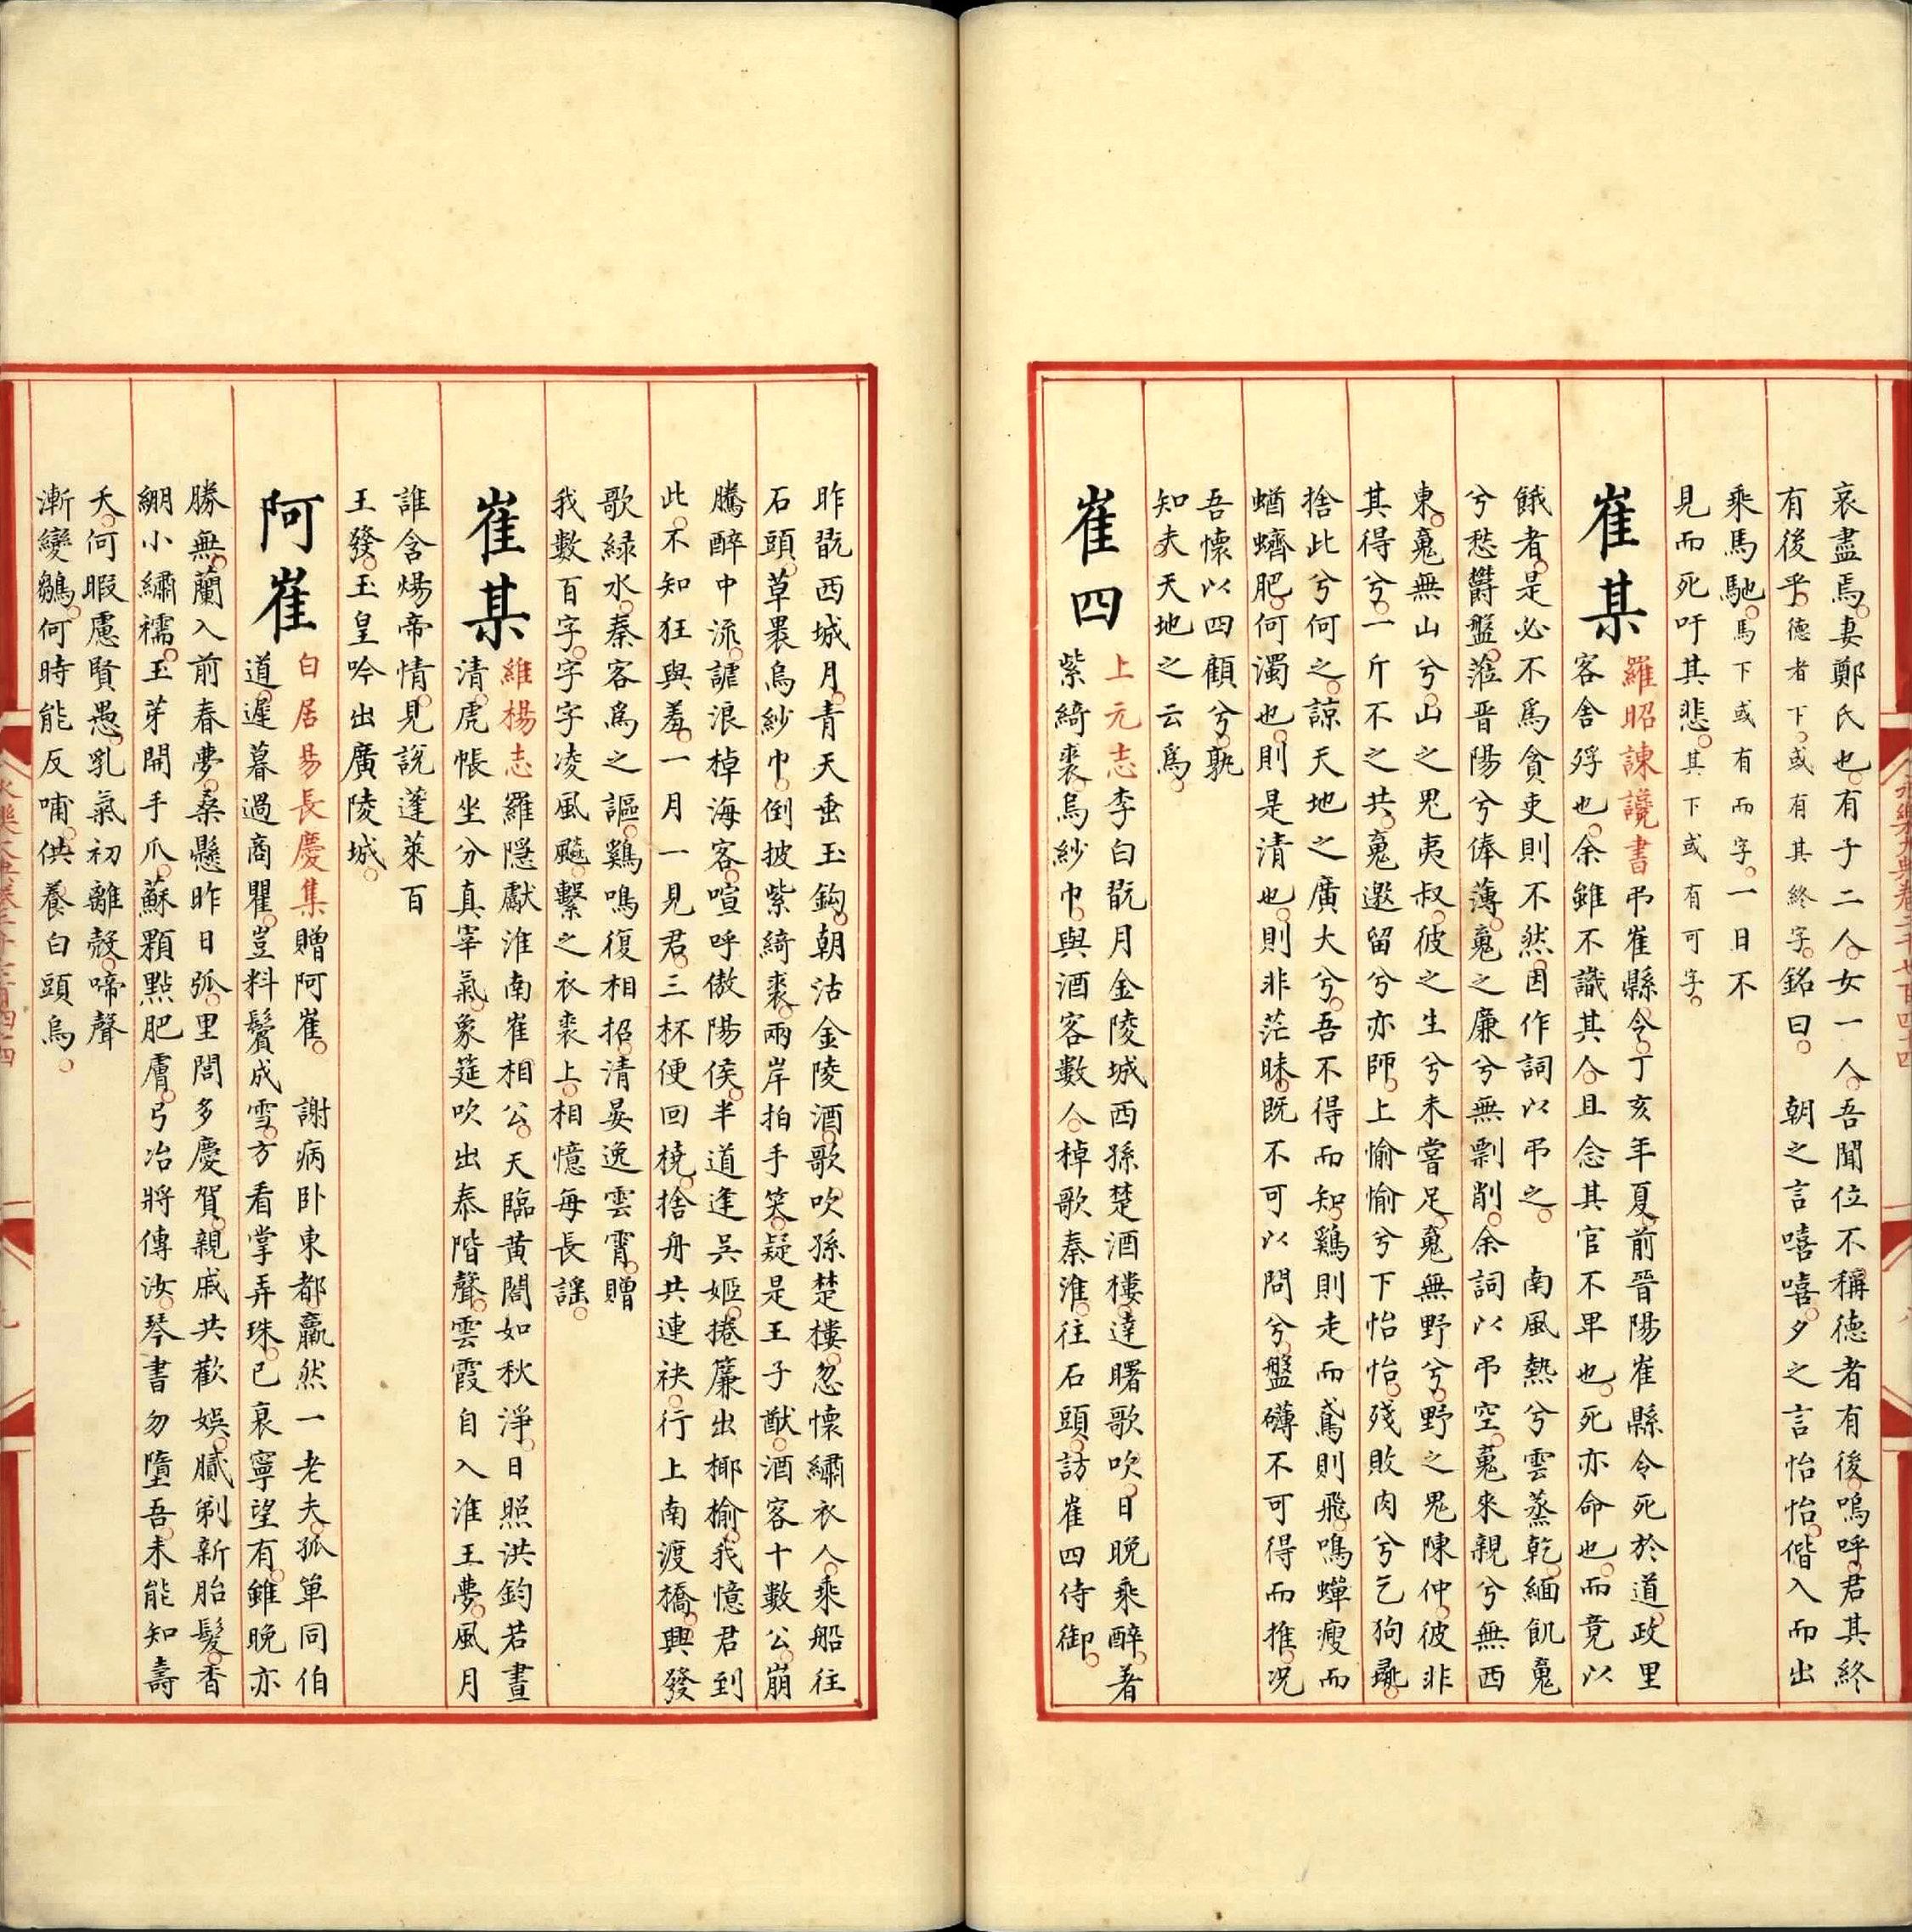 哀盡焉妻鄭氏也有子二人女一人吾聞位不稱德者有後嗚呼君其終
有後乎德者下或有其終字銘曰 朝之言嘻嘻夕之言怡怡偕入而出
乘馬馳馬下或有而字一日不
見而死吁其悲其下或有可字
崔某
羅昭諫讒書弔崔縣令丁亥年夏前晉陽崔縣令死於道政里
客舍殍也余雖不識其人且念其官不卑也死亦命也而竟以
餓者是必不為貪吏則不然因作詞以弔之 南風熱兮雲蒸乾緬飢䰟
兮愁欝盤蒞晋陽兮俸薄䰟之廉兮無剽削余詞以弔空䰟來親兮無西
東䰟無山兮山之鬼夷叔彼之生兮未嘗足䰟無野兮野之鬼陳仲彼非
其得兮一斤不之共䰟遨留兮亦師上愉愉兮下怡怡殘敗肉兮乞狗彘
捨此兮何之諒天地之廣大兮吾不得而知鷄則走而鳶則飛鳴蟬瘦而
蝤蠐肥何濁也則是清也則非茫昧既不可以問兮盤礴不可得而推況
吾懷以四顧兮孰
知夫天地之云為
崔四
上元志李白翫月金陵城西孫楚酒樓達曙歌吹日晚乘醉著
紫綺裘烏紗巾與酒客數人棹歌秦淮往石頭訪崔四侍御
昨翫西城月青天垂玉鈎朝沽金陵酒歌吹孫楚樓忽懷繡衣人乘船往
石頭草褁烏紗巾倒披紫綺裘兩岸拍手笑疑是王子猷酒客十數公崩
騰醉中流謔浪棹海客喧呼傲陽侯半道逢吳姬捲簾出揶揄我憶君到
此不知狂與羞一月一見君三杯便回橈捨舟共連袂行上南渡橋興發
歌緑水秦客為之謳鷄鳴復相招清晏逸雲霄贈
我數百字字字凌風飈繫之衣裘上相憶每長謡
崔某
維楊志羅隱獻淮南崔相公天臨黄閣如秋淨日照洪鈞若晝
清虎帳坐分真宰氣象筵吹出泰階聲雲霞自入淮王夢風月
誰含煬帝情見說蓬萊百
王發玉皇吟出廣陵城
阿崔
白居易長慶集贈阿崔 謝病卧東都羸然一老夫孤單同伯
道遲暮過商瞿豈料鬢成雪方看掌弄珠已衰寧望有雖晚亦
勝無蘭入前春夢桑懸昨日弧里閭多慶賀親戚共歡娛膩剃新胎髮香
綳小繡襦玉芽開手爪蘇顆點肥膚弓冶將傳汝琴書勿墮吾未能知壽
夭何暇慮賢愚乳氣初離殼啼聲
漸變鶵何時能反哺供養白頭烏